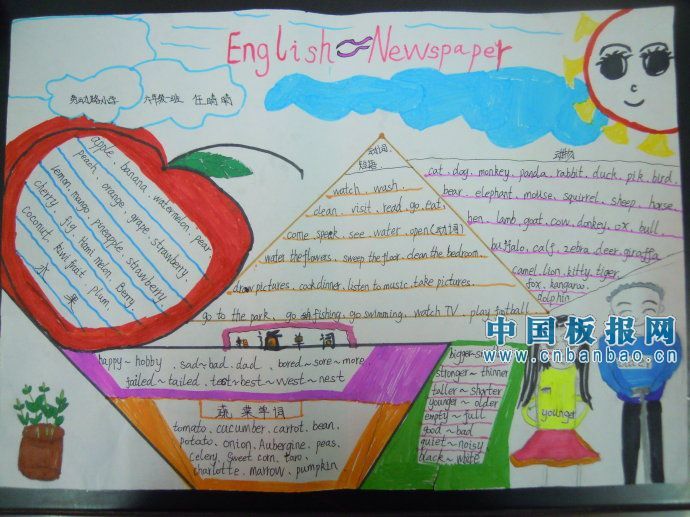 English Newspaper
六年级一班 任晴晴
apple、banana、watermelon、pear
peach、orange、grape、strawberry、
lemon、mango、pineapple、strawberry、
cherry、fig、Hami melon、Berry、
coconut、kiwi fruit、plum、
水果
动词、
短语
watch、wash、
clean、visit、read、go、eat、
come speek、see、water、open(动词)
water the flowers、sweep the floor、clean the bedroom、
draw pictures、cook dinner、listen to music、take pictures、
go to the park、go fishing、go swimming、watch TV、play football
动物
cat、dog、monkey、panda、rabbit、duck、pik、bird、
bear、elephant、mouse、squirrel、sheep、horse
hen、lamb、goat、cow、donkey、ox、bull、
buffalo、calf、zebra、deer、giraffa
camel、lion、kitty、tiger、
fox、kangaroo、
dolphin
单词
happy~hobby、sad~bad、dad、bored~sore~more
failed~tailed、test~best~west~nest
蔬菜单词
tomato、cucumber、carrot、bean、
potato、onion、Aubergine、peas、
celery、sweet corn、taro、
charlotte、marrow、pumpkin
bigger~
stronger~thinner
taller~shorter
younger~older
empty~full
good~bad
quiet~noisy
black~white
younger
中国板报网
www.cnbanbao.cn